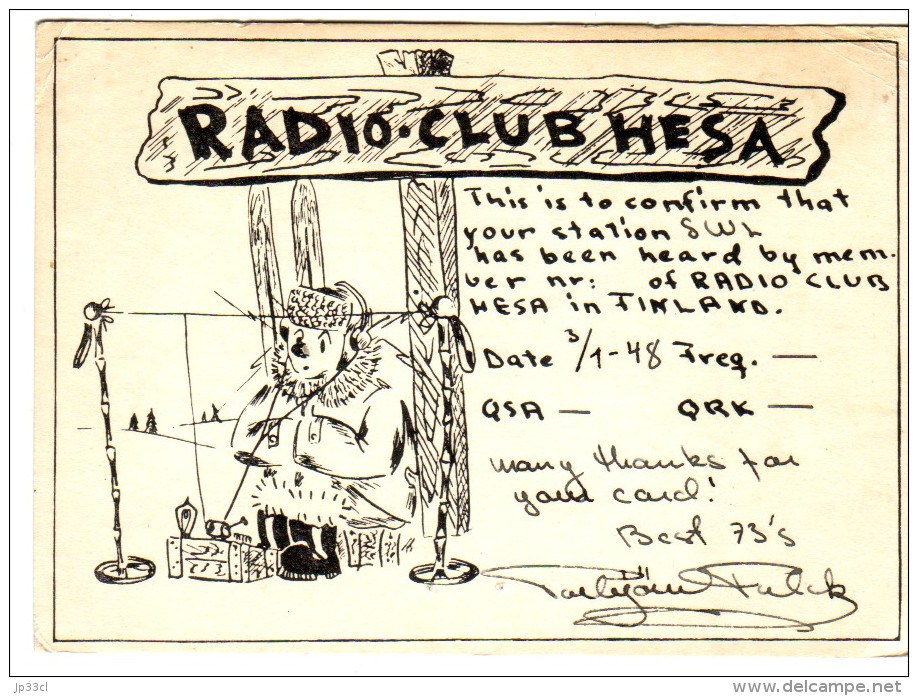 RADIO-CLUB HESA
This is to confirm that
your station SWL
has been heard by mem-
ber nr: of RADIO CLUB
HESA in FINLAND.
Date 3/1-48 Freq. —
QSA — QRK —
many thanks for
your card!
Best 73's
jp33cl
www.delcampe.net